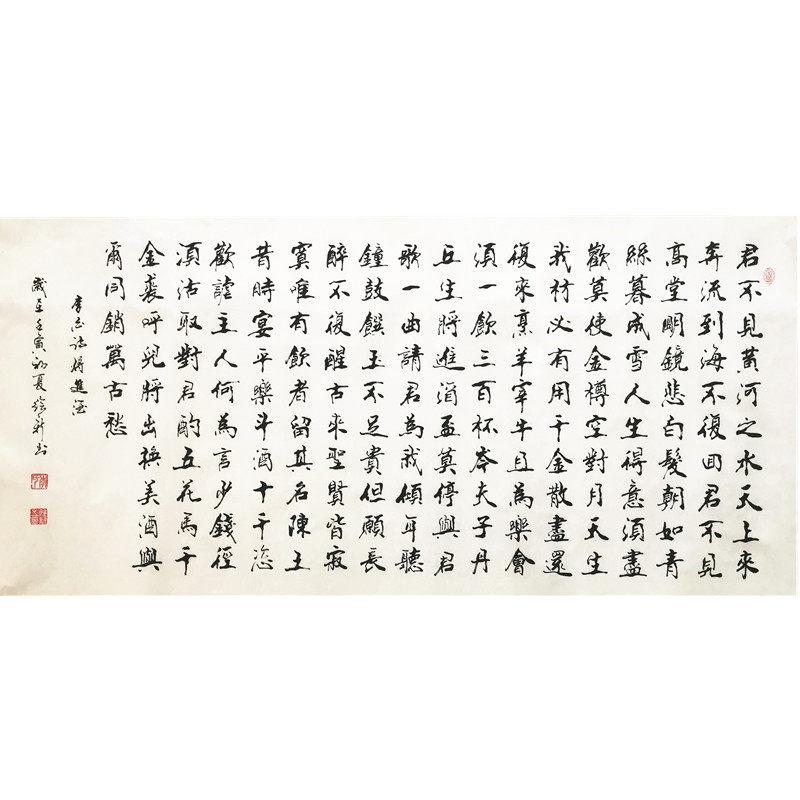 君不見黃河之水天上來
奔流到海不復回君不見
高堂明鏡悲白髮朝如青
絲暮成雪人生得意須盡
歡莫使金樽空對月天生
我材必有用千金散盡還
復來烹羊宰牛且為樂會
須一飲三百杯岑夫子丹
丘生將進酒盃莫停與君
歌一曲請君為我傾耳聽
鐘鼓饌玉不足貴但願長
醉不復醒古來聖賢皆寂
寞唯有飲者留其名陳王
昔時宴平樂斗酒十千恣
歡謔主人何為言少錢徑
須沽取對君酌五花馬千
金裘呼兒將出換美酒與
爾同銷萬古愁
李白詩將進酒
歲至壬寅初夏書